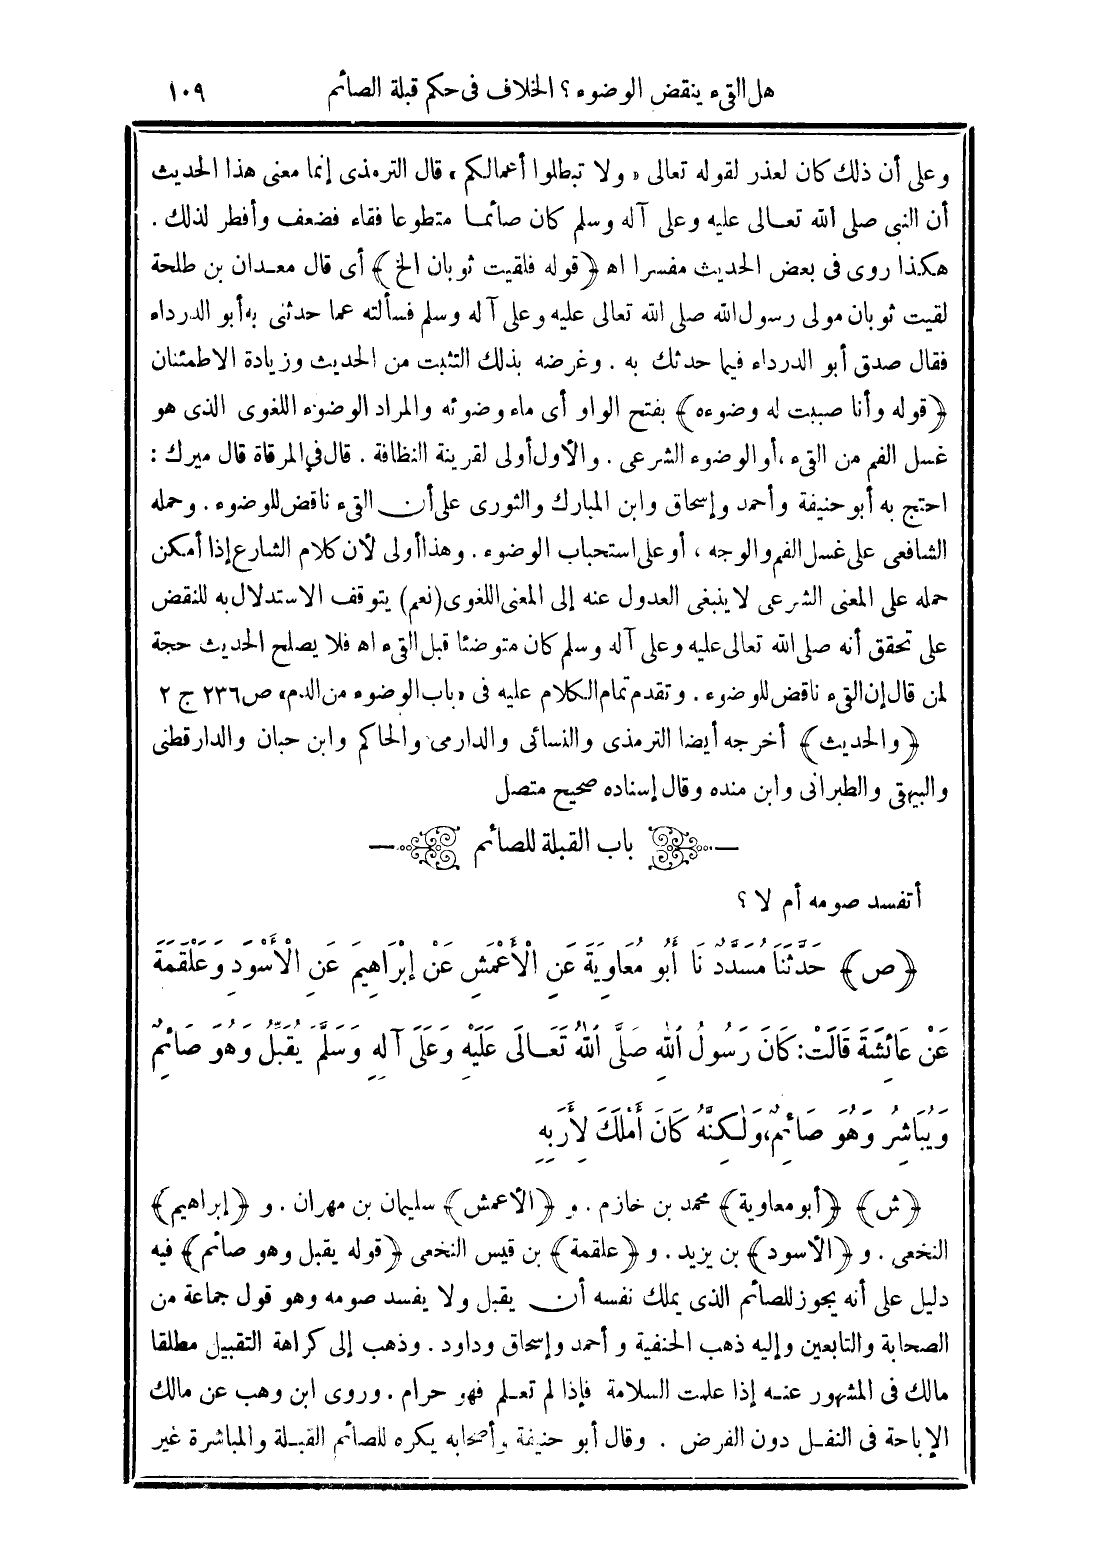 هل القىء ينقض الوضوء ؟ الخلاف فى حكم قبلة الصائم ١٠٩
وعلى أن ذلك كان لعذر لقوله تعالى « ولا تبطلوا أعمالكم » قال الترمذى إنما معنى هذا الحديث
أن النبى صلى الله تعالى عليه وعلى آله وسلم كان صائما متطوعا فقاء فضعف وأفطر لذلك .
هكذا روى فى بعض الحديث مفسرا اه ﴿قوله فلقيت ثوبان الخ﴾ أى قال معدان بن طلحة
لقيت ثوبان مولى رسول الله صلى الله تعالى عليه وعلى آله وسلم فسألته عما حدثنى به أبو الدرداء
فقال صدق أبو الدرداء فيما حدثك به . وغرضه بذلك التثبت من الحديث وزيادة الاطمئنان
﴿قوله وأنا صببت له وضوءه﴾ بفتح الواو أى ماء وضوئه والمراد الوضوء اللغوى الذى هو
غسل الفم من القىء ،أو الوضوء الشرعى . والأول أولى لقرينة النظافة . قال فى المرقاة قال ميرك :
احتج به أبو حنيفة وأحمد وإسحاق وابن المبارك والثورى على أن القىء ناقض للوضوء . وحمله
الشافعى على غسل الفم والوجه ، أو على استحباب الوضوء . وهذا أولى لأن كلام الشارع إذا أمكن
حمله على المعنى الشرعى لا ينبغى العدول عنه إلى المعنى اللغوى (نعم) يتوقف الاستدلال به للنقض
على تحقق أنه صلى الله تعالى عليه وعلى آله وسلم كان متوضئا قبل القىء اه فلا يصلح الحديث حجة
لمن قال إن القىء ناقض للوضوء . وتقدم تمام الكلام عليه فى «باب الوضوء من الدم» ص ٢٣٦ ج ٢
﴿والحديث﴾ أخرجه أيضا الترمذى والنسائى والدارمى والحاكم وابن حبان والدارقطنى
والبيهقى والطبرانى وابن منده وقال إسناده صحيح متصل
باب القبلة للصائم
أتفسد صومه أم لا ؟
﴿ص﴾ حَدَّثَنَا مُسَدَّدٌ نَا أَبُو مُعَاوِيَةَ عَنِ الْأَعْمَشِ عَنْ إِبْرَاهِيمَ عَنِ الْأَسْوَدِ وَعَلْقَمَةَ
عَنْ عَائِشَةَ قَالَتْ: كَانَ رَسُولُ اللهِ صَلَّى اللهُ تَعَالَى عَلَيْهِ وَعَلَى آلِهِ وَسَلَّمَ يُقَبِّلُ وَهُوَ صَائِمٌ
وَيُبَاشِرُ وَهُوَ صَائِمٌ، وَلٰكِنَّهُ كَانَ أَمْلَكَ لِأَرَبِهِ
﴿ش﴾ ﴿أبو معاوية﴾ محمد بن خازم . و ﴿الأعمش﴾ سليمان بن مهران . و ﴿إبراهيم﴾
النخعى . و ﴿الأسود﴾ بن يزيد . و ﴿علقمة﴾ بن قيس النخعى ﴿قوله يقبل وهو صائم﴾ فيه
دليل على أنه يجوز للصائم الذى يملك نفسه أن يقبل ولا يفسد صومه وهو قول جماعة من
الصحابة والتابعين وإليه ذهب الحنفية وأحمد وإسحاق وداود . وذهب إلى كراهة التقبيل مطلقا
مالك فى المشهور عنه إذا علمت السلامة فإذا لم تعلم فهو حرام . وروى ابن وهب عن مالك
الإباحة فى النفل دون الفرض . وقال أبو حنيفة وأصحابه يكره للصائم القبلة والمباشرة غير